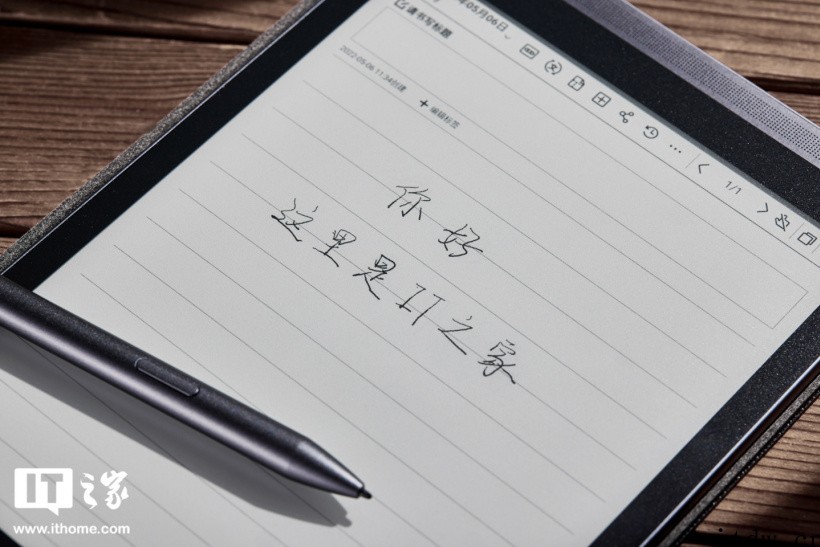 年05月06日
请书写标题
1/1
2022-05-06 11:34创建
+ 编辑标签
你好
这里是IT之家
IT之家
www.ithome.com